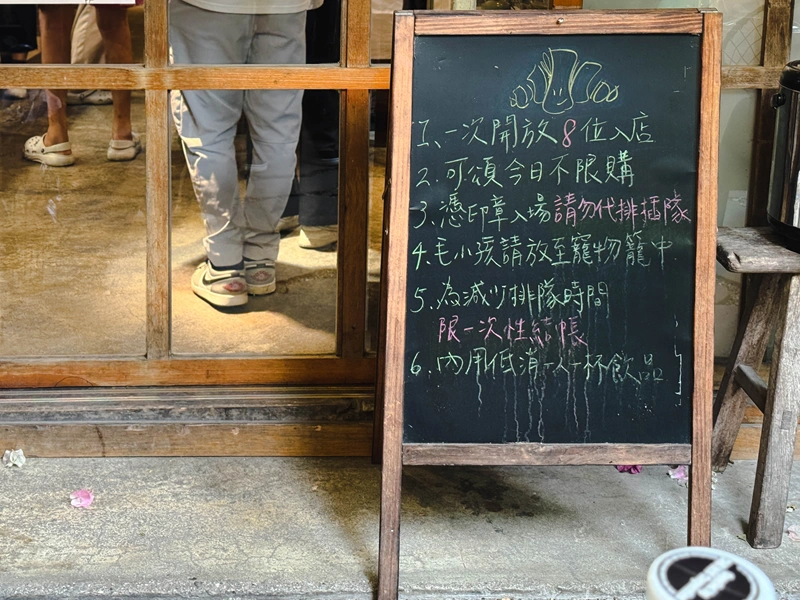 1、一次開放8位入店
2、可頌今日不限購
3、憑印章入場請勿代排插隊
4、毛小孩請放至寵物籠中
5、為減少排隊時間
限一次性結帳
6、內用低消一人一杯飲品